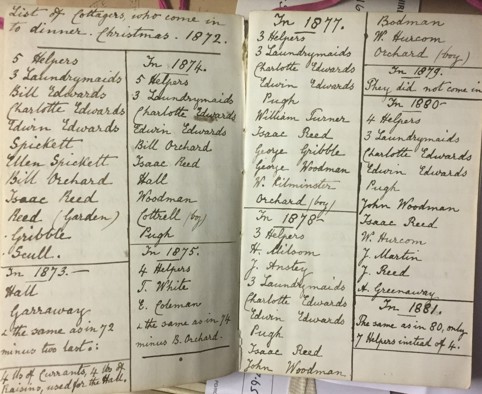 List of Cottagers, who come in
to dinner. Christmas. 1872.
5 Helpers
3 Laundrymaids
Bill Edwards
Charlotte Edwards
Edwin Edwards
Spickett
Ellen Spickett
Bill Orchard
Isaac Reed
Reed (Garden)
Gribble
Scull.
In 1873.—
Hall
Garraway
& the same as in 72
minus two last:
4 lbs of Currants, 4 lbs of
Raisins, used for the Hall,
In 1874.
5 Helpers
3 Laundrymaids
Charlotte Edwards
Edwin Edwards
Bill Orchard
Isaac Reed
Hall
Woodman
Cottrell (boy)
Pugh
In 1875.
4 Helpers
T. White
E. Coleman
& the same as in 74
minus B. Orchard.
In 1877.
3 Helpers
3 Laundrymaids
Charlotte Edwards
Edwin Edwards
Pugh
William Turner
Isaac Reed
George Gribble
George Woodman
W. Kilminster
Orchard (boy)
In 1878—
3 Helpers
H. Milsom
J. Anstey
3 Laundrymaids
Charlotte Edwards
Edwin Edwards
Pugh
Isaac Reed
John Woodman
Bodman
W. Hurcom
Orchard (boy)
In 1879.
They did not come in
In 1880—
4 Helpers
3 Laundrymaids
Charlotte Edwards
Edwin Edwards
Pugh
John Woodman
Isaac Reed
W. Hurcom
J. Martin
J. Reed
H. Greenaway
In 1881.
The same as in 80, only
7 Helpers instead of 4.